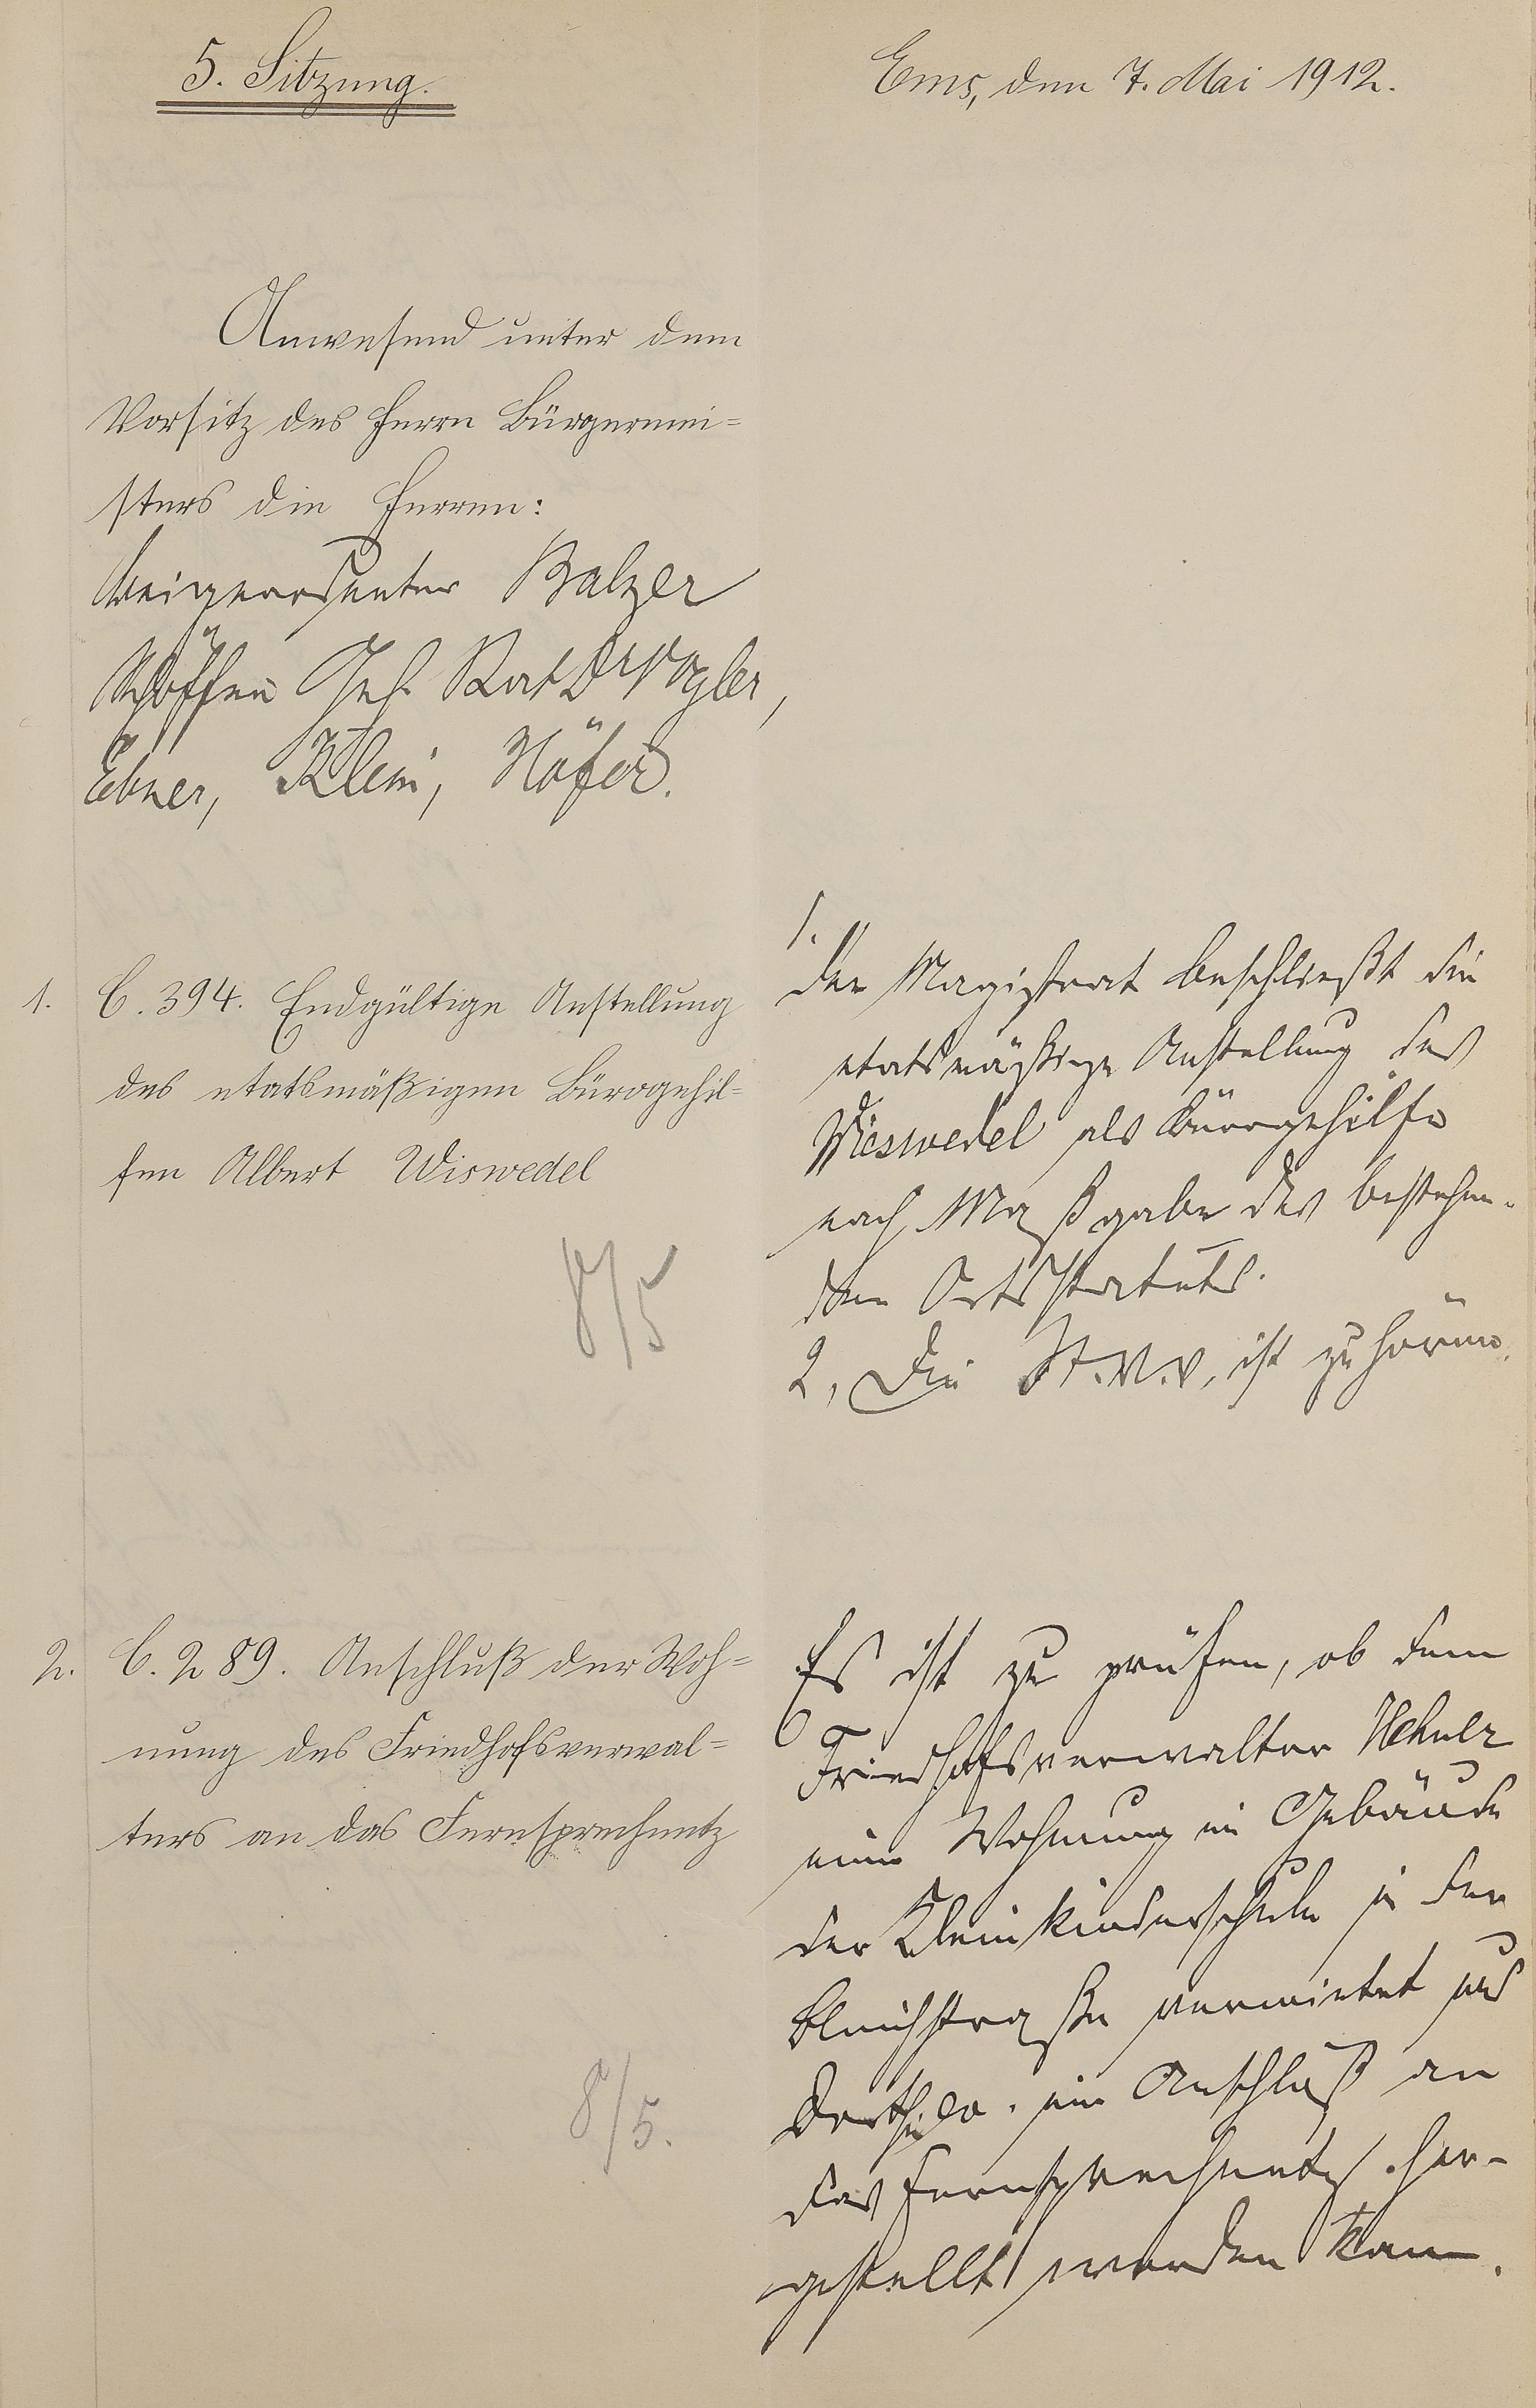 5. Sitzung.
Ems, den 7. Mai 1912.
Anwesend unter dem
Vorsitz des Herrn Bürgermei=
sters die Herren:
Beigeordneter Balzer
Schöffen Geh. Rat Dr Vogler,
Ebner, Klein, Höfer.
1. C. 394. Endgültige Anstellung
des etatsmäßigen Bürogehil=
fen Albert Wiswedel
8/5
1.
Der Magistrat beschließt die
etatsmäßige Anstellung des
Wieswedel als Bürogehilfe
nach Maßgabe des bestehen-
den Ortsstatuts.
2, Die St.V.V. ist zu hören.
2. C. 289. Anschluß der Woh=
nung des Friedhofsverwal=
ters an das Fernsprechnetz
8/5.
Es ist zu prüfen, ob dem
Friedhofsverwalter
eine Wohnung im Gebäude
der Kleinkinderschule in der
Bleichstraße vermietet und
ein Anschluß an
das Fernsprechnetz her-
gestellt werden kann.